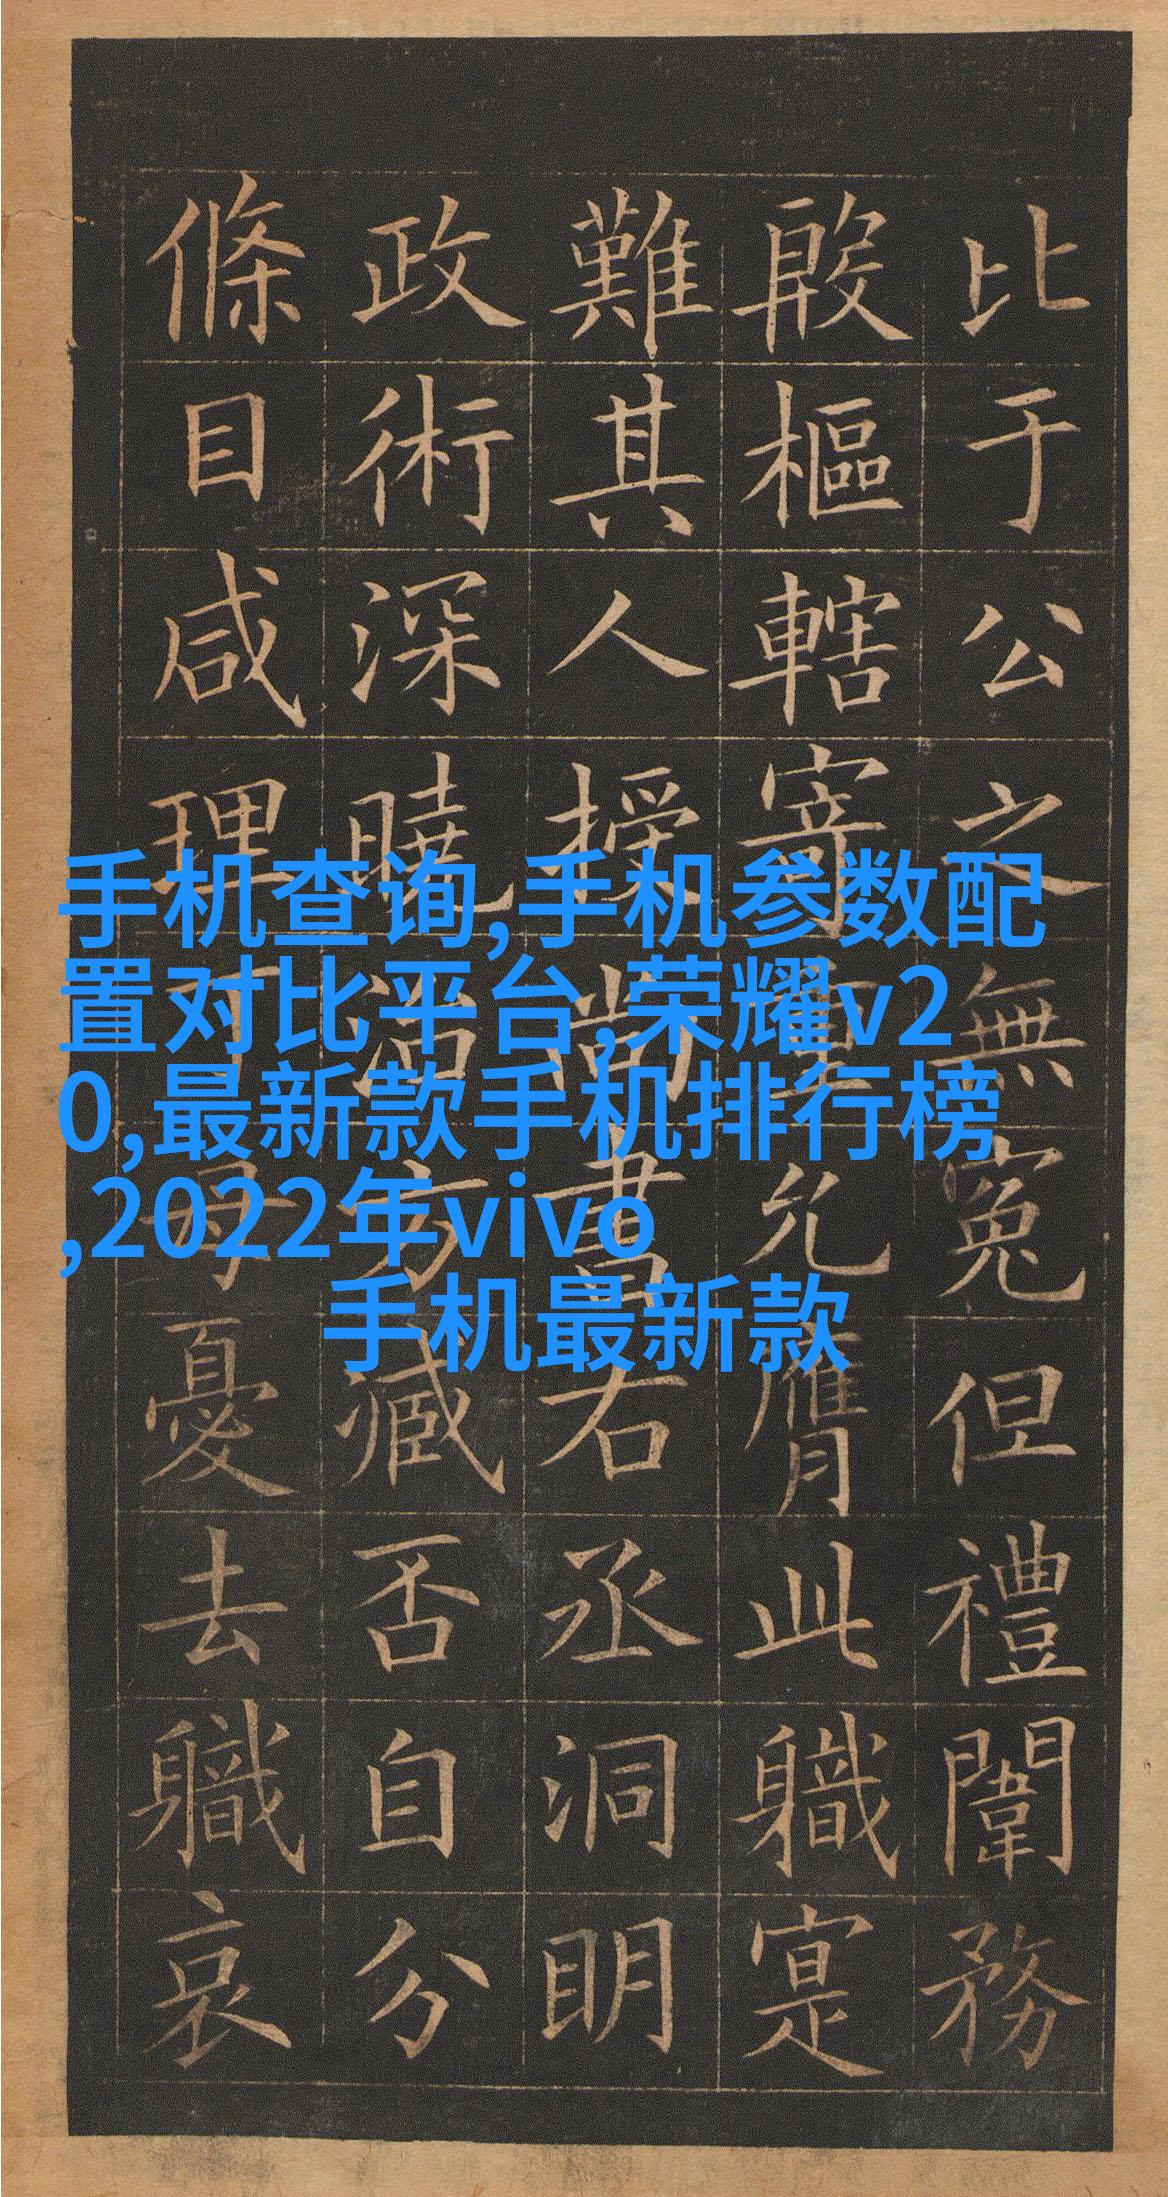 手机查询,手机参数配
置对比平台,荣耀v2
0,最新款手机排行榜
,2022年vivo
手机最新款
比于公之無冤但禮闈務
殷樞轄寄允膺此職寔
難其人授尚書右丞洞明
政術深曉治方臧否自分
條目咸理丁母憂去職哀